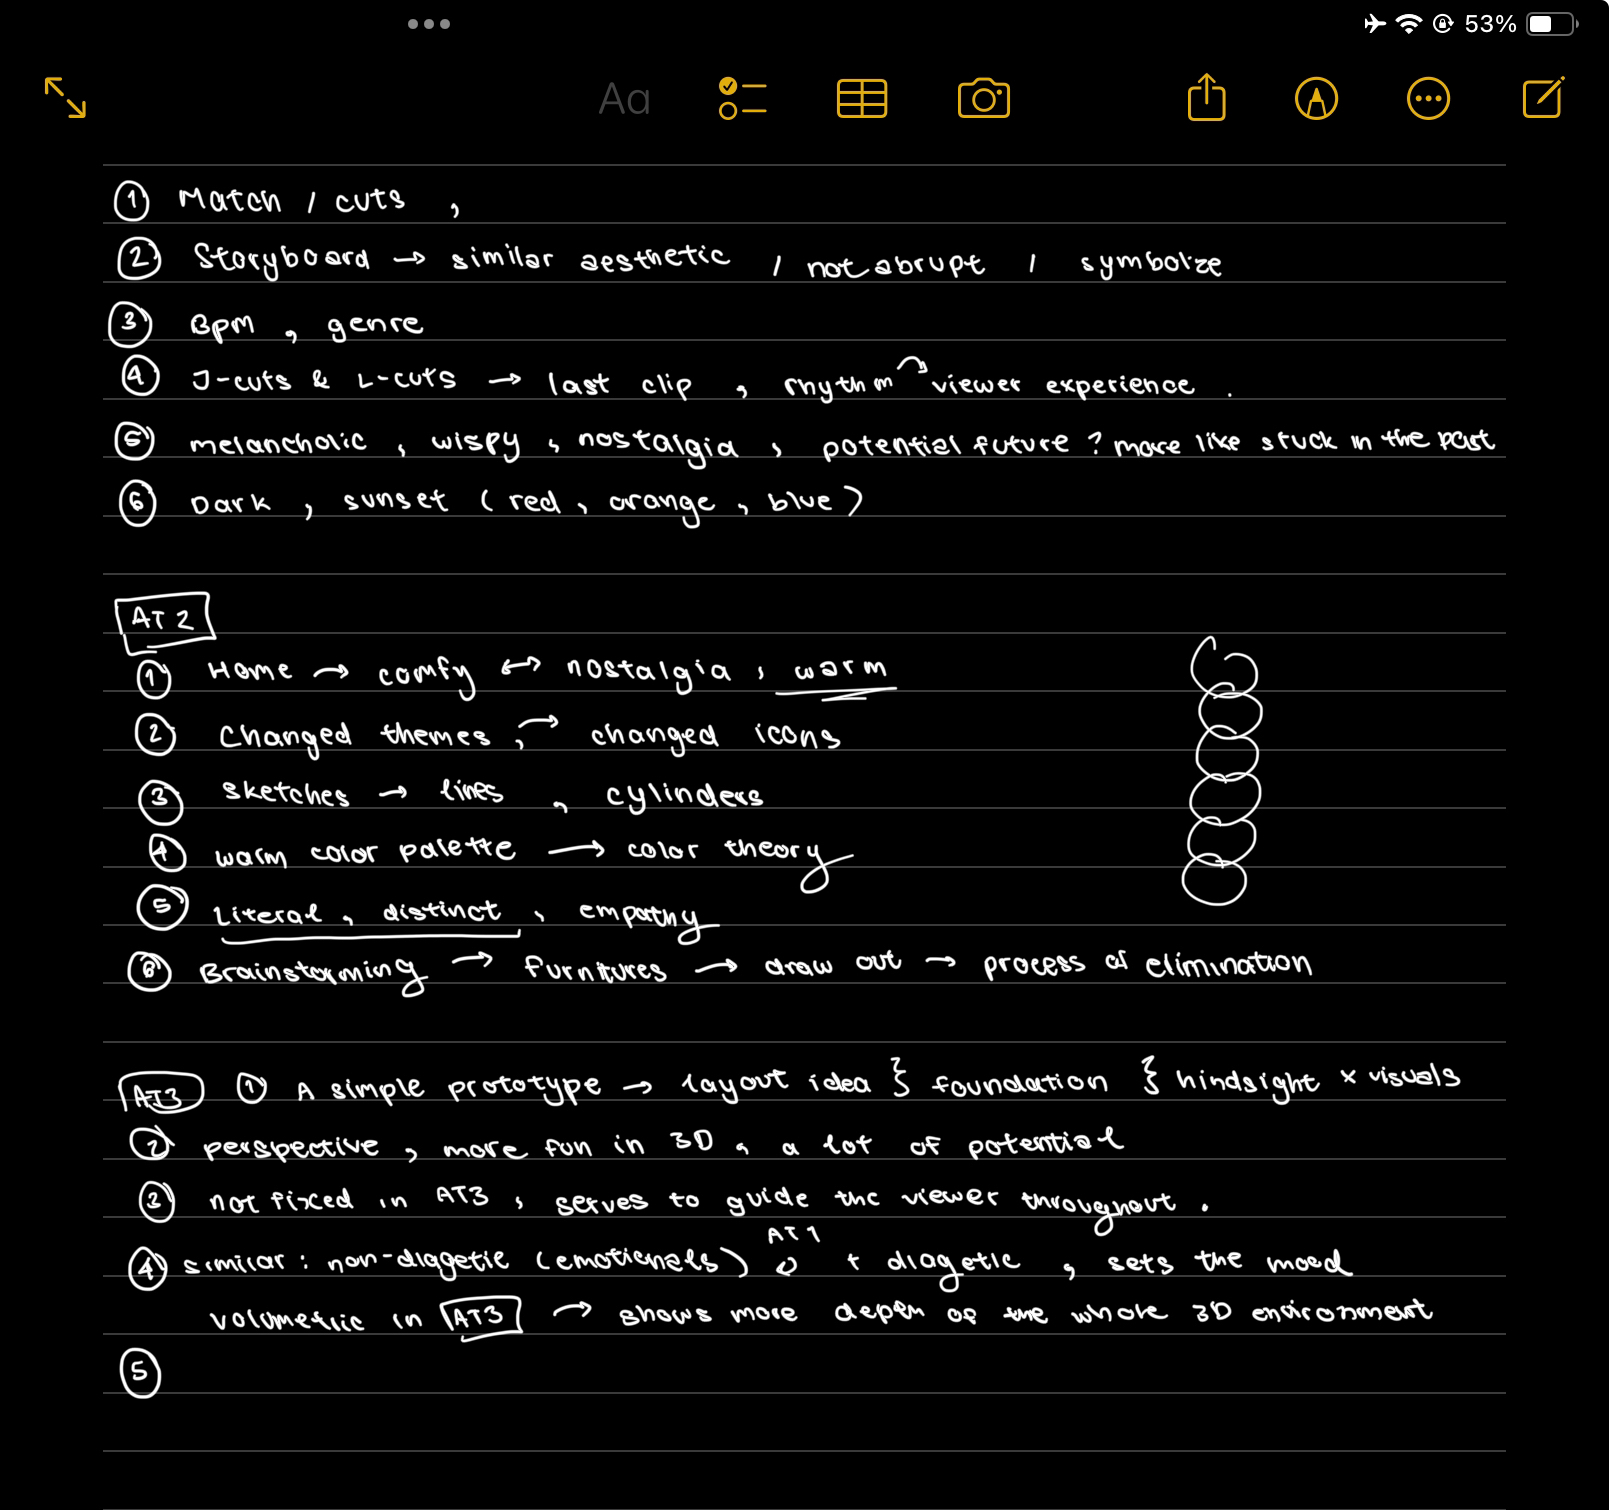 53%
Aa
① Match / cuts ,
② Storyboard → similar aesthetic / not abrupt / symbolize
③ Bpm , genre
④ J-cuts & L-cuts → last clip , rhythm → viewer experience .
⑤ melancholic , wispy , nostalgia , potential future ? more like stuck in the past
⑥ Dark , sunset ( red , orange , blue )
AT2
① Home → comfy ↔ nostalgia , warm
② Changed themes , → changed icons
③ sketches → lines , cylinders
④ warm color palette → color theory
⑤ Literal , distinct , empathy
⑥ Brainstorming → furnitures → draw out → process of elimination
AT3 ① A simple prototype → layout idea } foundation } hindsight x visuals
② perspective , more fun in 3D , a lot of potential
③ not fixced in AT3 , serves to guide the viewer throughout .
AT1
④ similar : non-diagetic (emotionals) + diagetic , sets the mood
volumetric in AT3 → shows more depth of the whole 3D environment
⑤